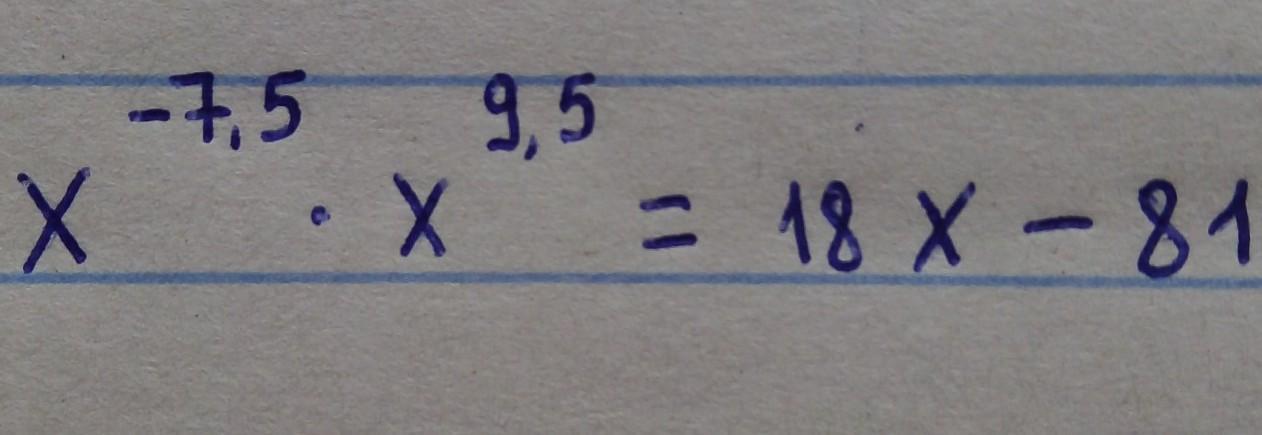 x^{-7,5} · x^{9,5} = 18x - 81